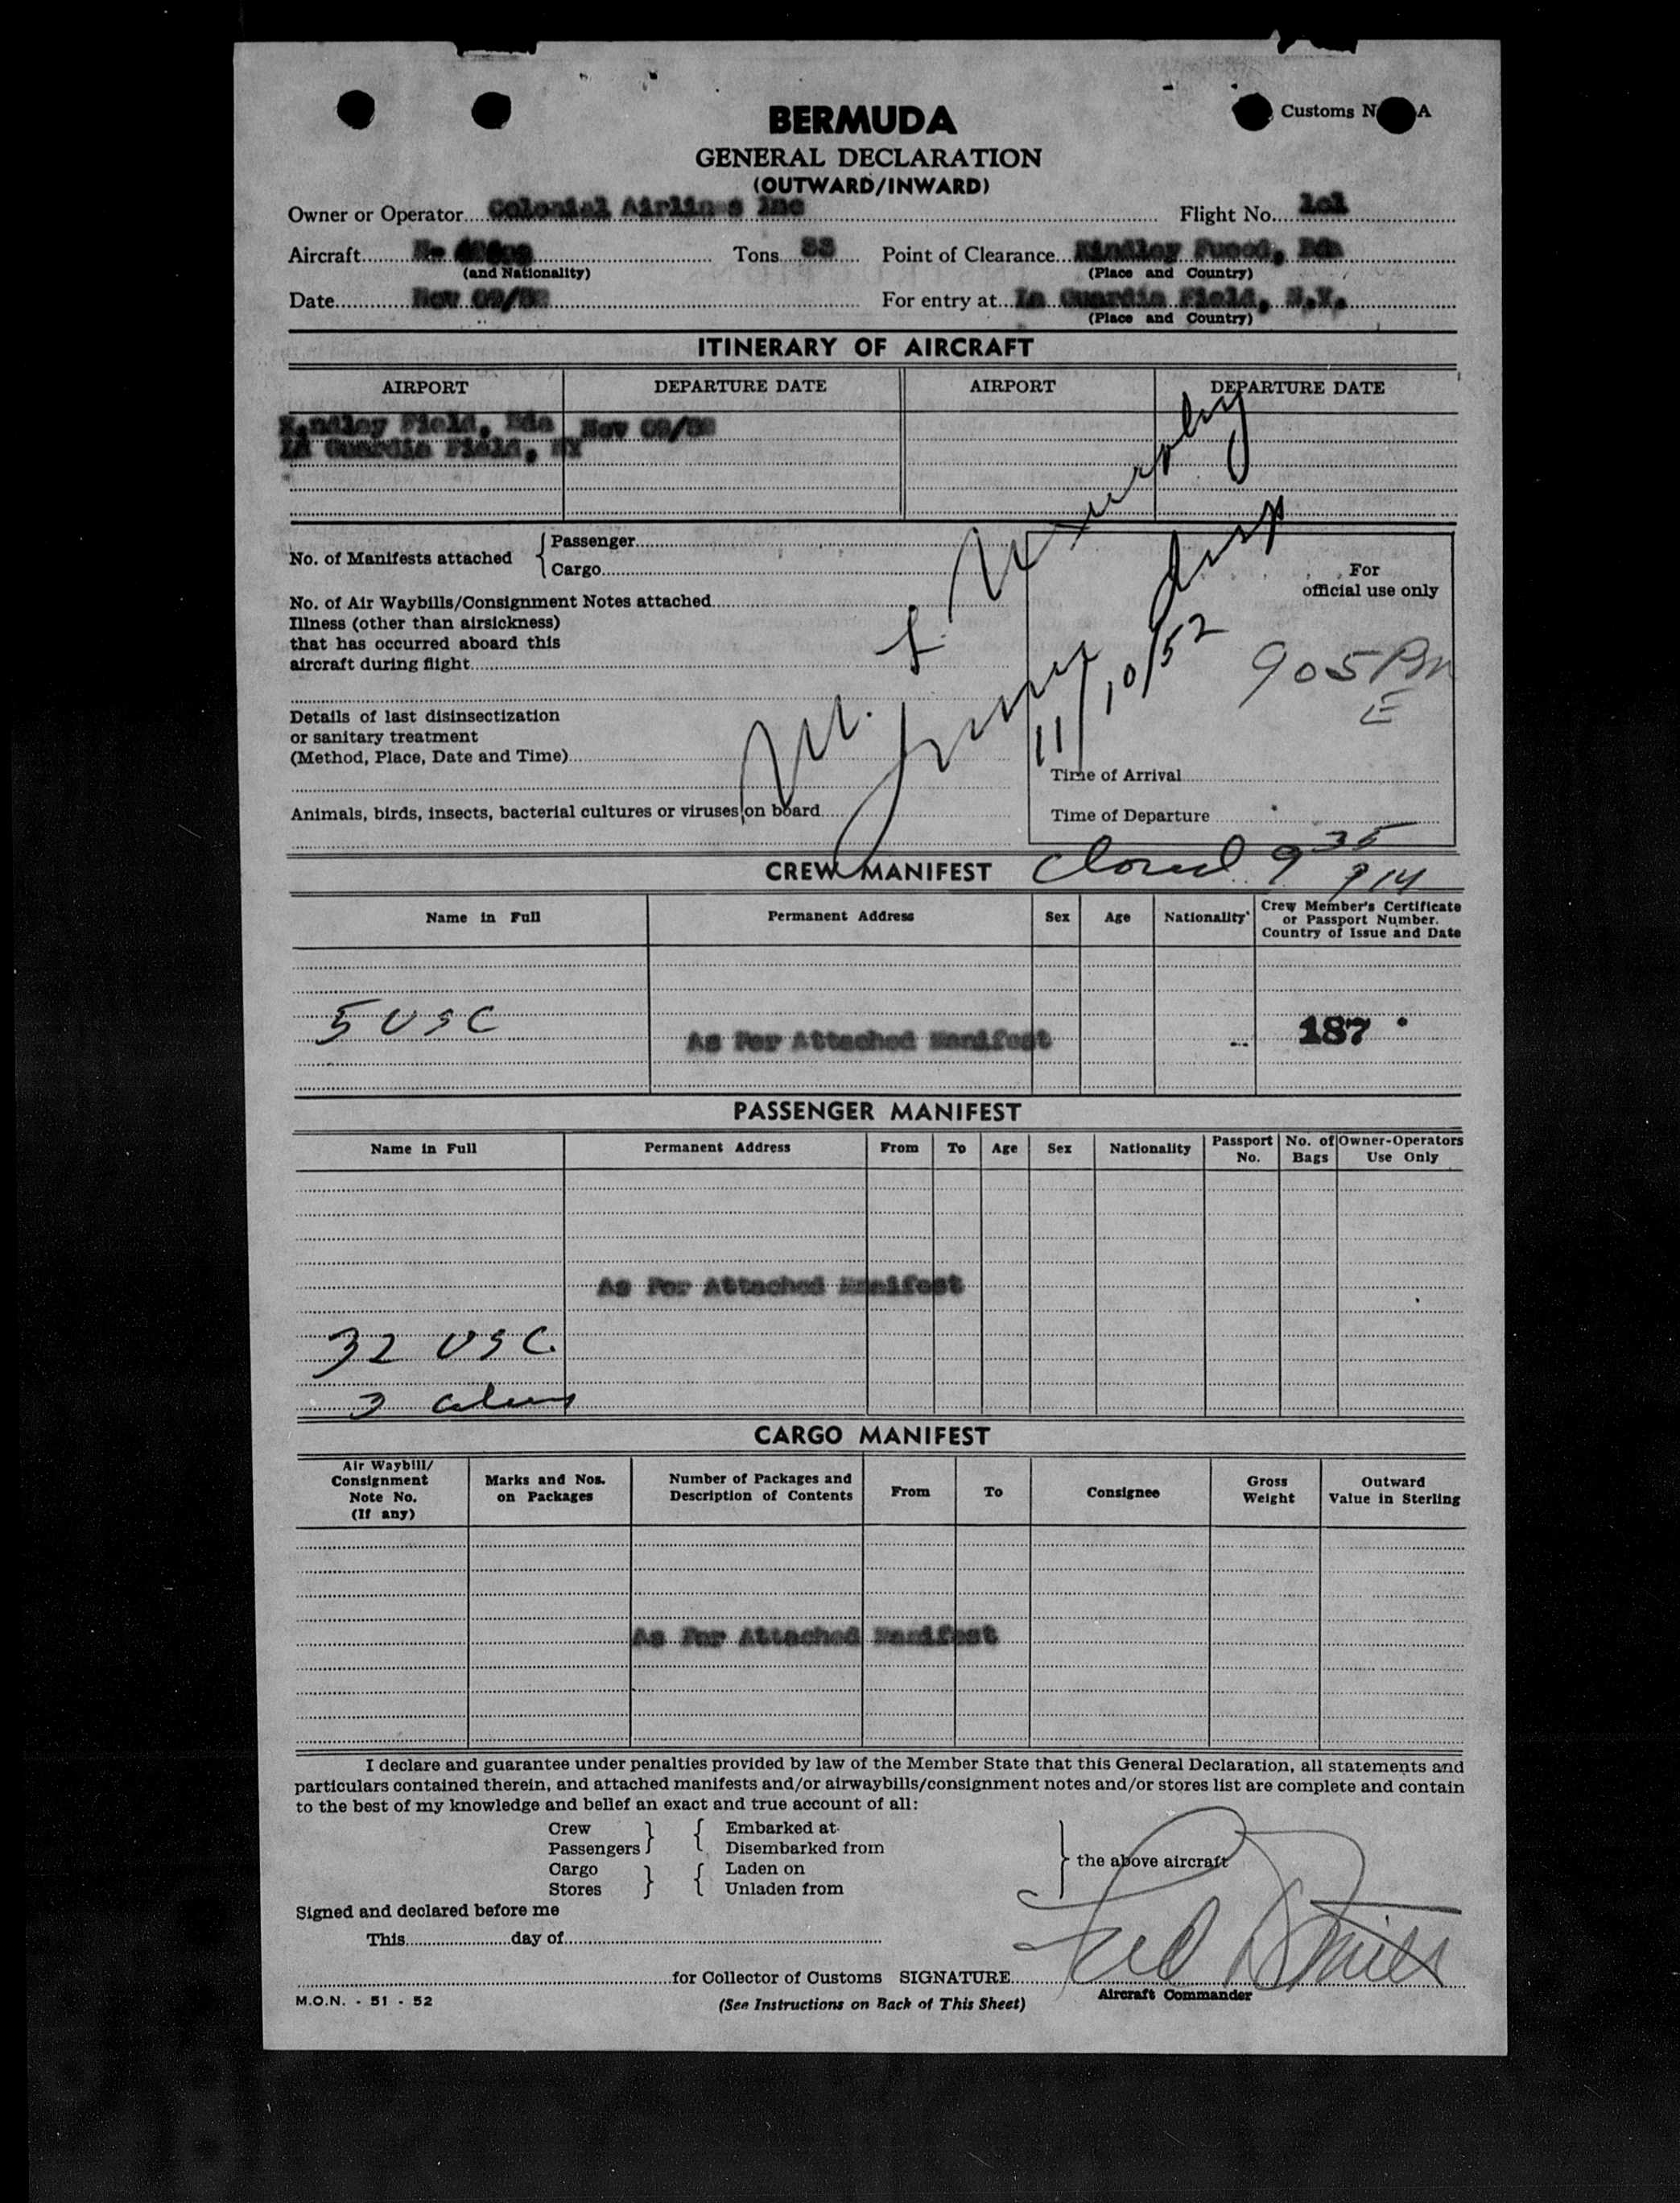 Customs N A
BERMUDA
GENERAL DECLARATION
(OUTWARD/INWARD)
Owner or Operator Colonial Airlines Inc Flight No. 101
Aircraft N- Tons Point of Clearance Kindley Bda
(and Nationality) (Place and Country)
Date Nov 09/52 For entry at La Guardia Field, N.Y.
(Place and Country)
ITINERARY OF AIRCRAFT
AIRPORT DEPARTURE DATE AIRPORT DEPARTURE DATE
Kindley Field, Bda Nov 09/52
La Guardia Field, NY
No. of Manifests attached { Passenger
Cargo
For
official use only
No. of Air Waybills/Consignment Notes attached
Illness (other than airsickness)
that has occurred aboard this
aircraft during flight
11/10/52
905 PM
E
Details of last disinsectization
or sanitary treatment
(Method, Place, Date and Time)
Time of Arrival
Animals, birds, insects, bacterial cultures or viruses on board
Time of Departure
CREW MANIFEST Closed 9 35 PM
Name in Full Permanent Address Sex Age Nationality Crew Member's Certificate
or Passport Number.
Country of Issue and Date
5 USC As Per Attached Manifest 187
PASSENGER MANIFEST
Name in Full Permanent Address From To Age Sex Nationality Passport No. No. of Bags Owner-Operators Use Only
As Per Attached Manifest
32 USC
3 aliens
CARGO MANIFEST
Air Waybill/
Consignment
Note No.
(If any) Marks and Nos. on Packages Number of Packages and Description of Contents From To Consignee Gross Weight Outward Value in Sterling
As Per Attached Manifest
I declare and guarantee under penalties provided by law of the Member State that this General Declaration, all statements and
particulars contained therein, and attached manifests and/or airwaybills/consignment notes and/or stores list are complete and contain
to the best of my knowledge and belief an exact and true account of all:
Crew } { Embarked at
Passengers Disembarked from
Cargo } { Laden on } the above aircraft
Stores Unladen from
Signed and declared before me
This day of
for Collector of Customs SIGNATURE
Aircraft Commander
M.O.N. - 51 - 52
(See Instructions on Back of This Sheet)